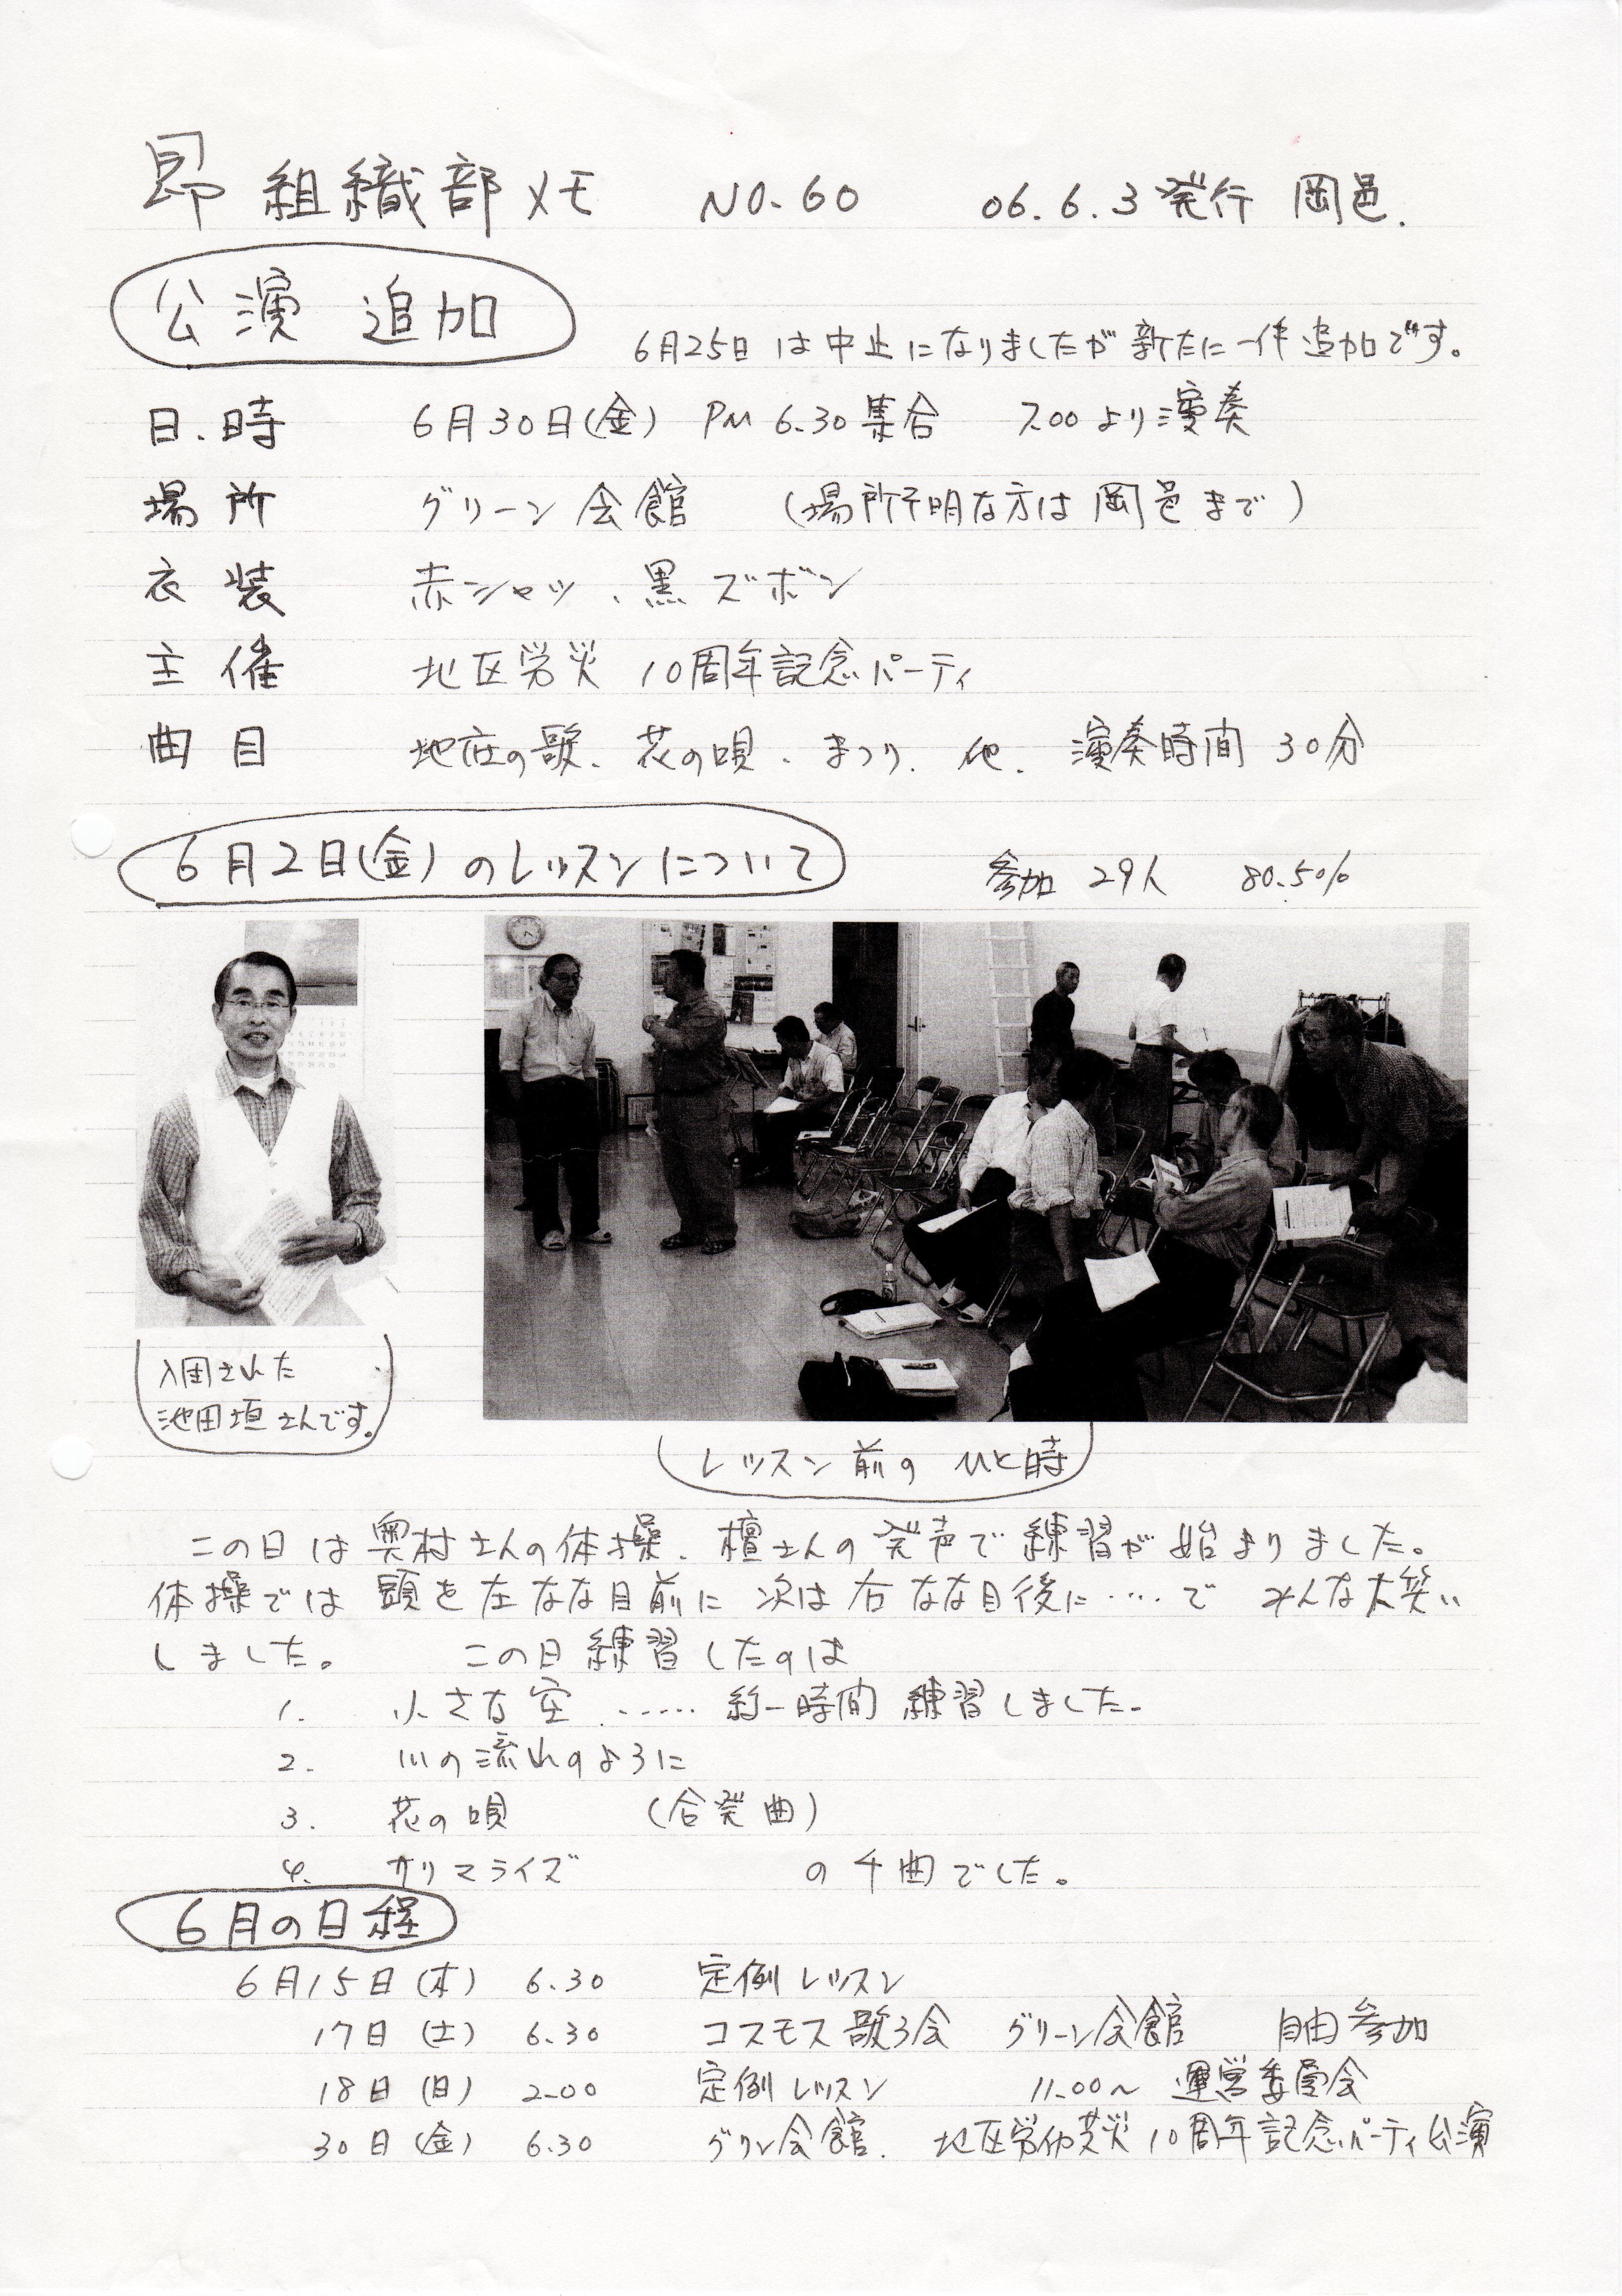 昴 組織部メモ NO.60 06.6.3発行 岡邑.
公演 追加
6月25日は中止になりましたが新たに一件追加です。
日.時 6月30日(金) PM 6.30集合 7.00より演奏
場所 グリーン会館 (場所不明な方は岡邑まで)
衣装 赤シャツ、黒ズボン
主催 地区労災 10周年記念パーティ
曲目 地底の歌、花の唄、まつり、他. 演奏時間 30分
6月2日(金)のレッスンについて
参加 29人 80.5%
入団された
池田垣さんです。
レッスン前の ひと時
この日は奥村さんの体操、檀さんの発声で練習が始まりました。
体操では 頭を左ななめ前に 次は右ななめ後に‥‥で みんな大笑い
しました。 この日練習したのは
1. 小さな空 ‥‥‥ 約一時間 練習しました。
2. 川の流れのように
3. 花の唄 (合発曲)
4. サリマライズ の4曲でした。
6月の日程
6月15日(木) 6.30 定例レッスン
17日(土) 6.30 コスモス歌う会 グリーン会館 自由参加
18日(日) 2.00 定例レッスン 11.00〜 運営委員会
30日(金) 6.30 グリン会館. 地区労働災 10周年記念パーティ公演